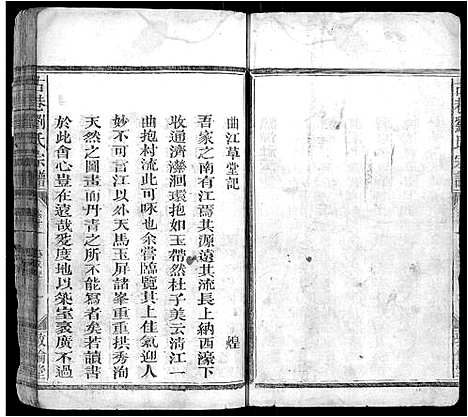 曲江草堂記
煌
吾家之南有江焉其源遠其流長上納西濠下
收通濟瀠洄環抱如玉帶然杜子美云清江一
曲抱村流此可咏也余嘗臨覽其上佳氣迎人
妙不可言江以外天馬玉屏諸峯重重拱秀洵
天然之圖畫而丹青之所不能寫者矣若讀書
於此會心豈在遠哉爰度地以築室袤廣不過
古巷劉氏宗譜
敦倫堂